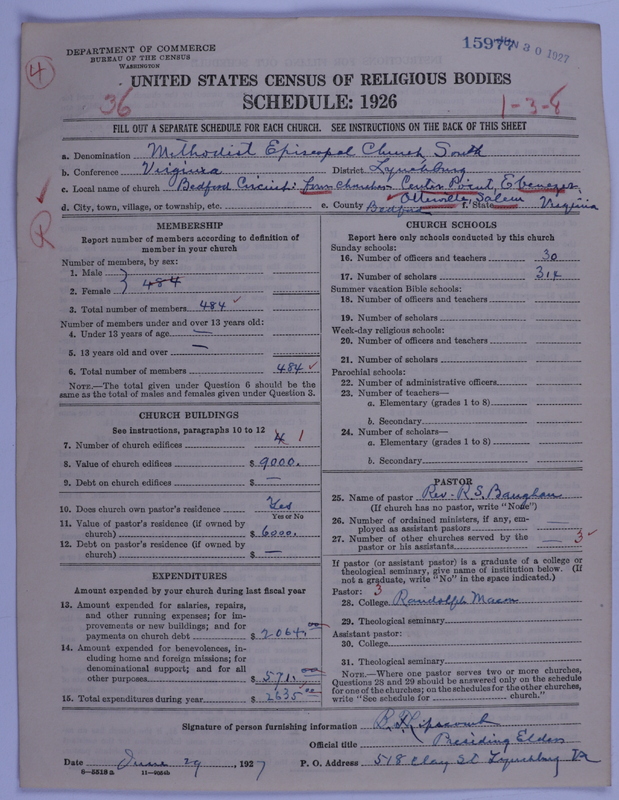 DEPARTMENT OF COMMERCE
BUREAU OF THE CENSUS
WASHINGTON
1597
JUN 30 1927
4
UNITED STATES CENSUS OF RELIGIOUS BODIES
36
SCHEDULE: 1926
1-3-8
FILL OUT A SEPARATE SCHEDULE FOR EACH CHURCH. SEE INSTRUCTIONS ON THE BACK OF THIS SHEET
a. Denomination Methodist Episcopal Church, South
b. Conference Virginia District Lynchburg
c. Local name of church Bedford Circuit: Center Point, Ebenezer,
Otterville, Salem
d. City, town, village, or township, etc. e. County Bedford f. State Virginia
R
MEMBERSHIP
Report number of members according to definition of
member in your church
Number of members, by sex:
1. Male
484
2. Female
3. Total number of members 484
Number of members under and over 13 years old:
4. Under 13 years of age —
5. 13 years old and over —
6. Total number of members 484
NOTE.—The total given under Question 6 should be the
same as the total of males and females given under Question 3.
CHURCH BUILDINGS
See instructions, paragraphs 10 to 12
7. Number of church edifices 4 1
8. Value of church edifices $ 9000.
9. Debt on church edifices $ —
10. Does church own pastor's residence Yes
Yes or No
11. Value of pastor's residence (if owned by
church) $ 6000.
12. Debt on pastor's residence (if owned by
church) $ —
EXPENDITURES
Amount expended by your church during last fiscal year
13. Amount expended for salaries, repairs,
and other running expenses; for im-
provements or new buildings; and for
payments on church debt $ 2064.
14. Amount expended for benevolences, in-
cluding home and foreign missions; for
denominational support; and for all
other purposes $ 571.00
15. Total expenditures during year $ 2635.00
CHURCH SCHOOLS
Report here only schools conducted by this church
Sunday schools:
16. Number of officers and teachers 30
17. Number of scholars 314
Summer vacation Bible schools:
18. Number of officers and teachers
19. Number of scholars
Week-day religious schools:
20. Number of officers and teachers
21. Number of scholars
Parochial schools:
22. Number of administrative officers
23. Number of teachers—
a. Elementary (grades 1 to 8)
b. Secondary
24. Number of scholars—
a. Elementary (grades 1 to 8)
b. Secondary
PASTOR
25. Name of pastor Rev. R. S. Baughan
(If church has no pastor, write "None")
26. Number of ordained ministers, if any, em-
ployed as assistant pastors —
27. Number of other churches served by the
pastor or his assistants — 3
If pastor (or assistant pastor) is a graduate of a college or
theological seminary, give name of institution below. (If
not a graduate, write "No" in the space indicated.)
Pastor: 3
28. College Randolph Macon
29. Theological seminary
Assistant pastor:
30. College
31. Theological seminary
NOTE.—Where one pastor serves two or more churches,
Questions 28 and 29 should be answered only on the schedule
for one of the churches; on the schedules for the other churches,
write "See schedule for church."
Signature of person furnishing information Lipscomb
Official title Presiding Elder
Date June 29, 1927 P. O. Address 518 Clay St Lynchburg Va